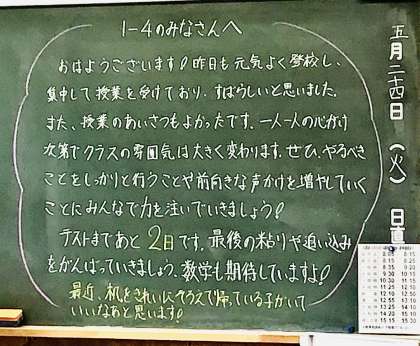 1-4のみなさんへ
おはようございます!昨日も元気よく登校し、
集中して授業を受けており、すばらしいと思いました。
また、授業のあいさつもよかったです。一人一人の心がけ
次第でクラスの雰囲気は大きく変わります。ぜひ、やるべき
ことをしっかりと行うことや前向きな声かけを増やしていく
ことにみんなで力を注いでいきましょう!
テストまであと2日です。最後の粘りや追い込み
をがんばっていきましょう。数学も期待していますよ!
最近、机をきれいにそろえて帰っている子がいて
いいなあと思います!
五月二十四日(火)日直